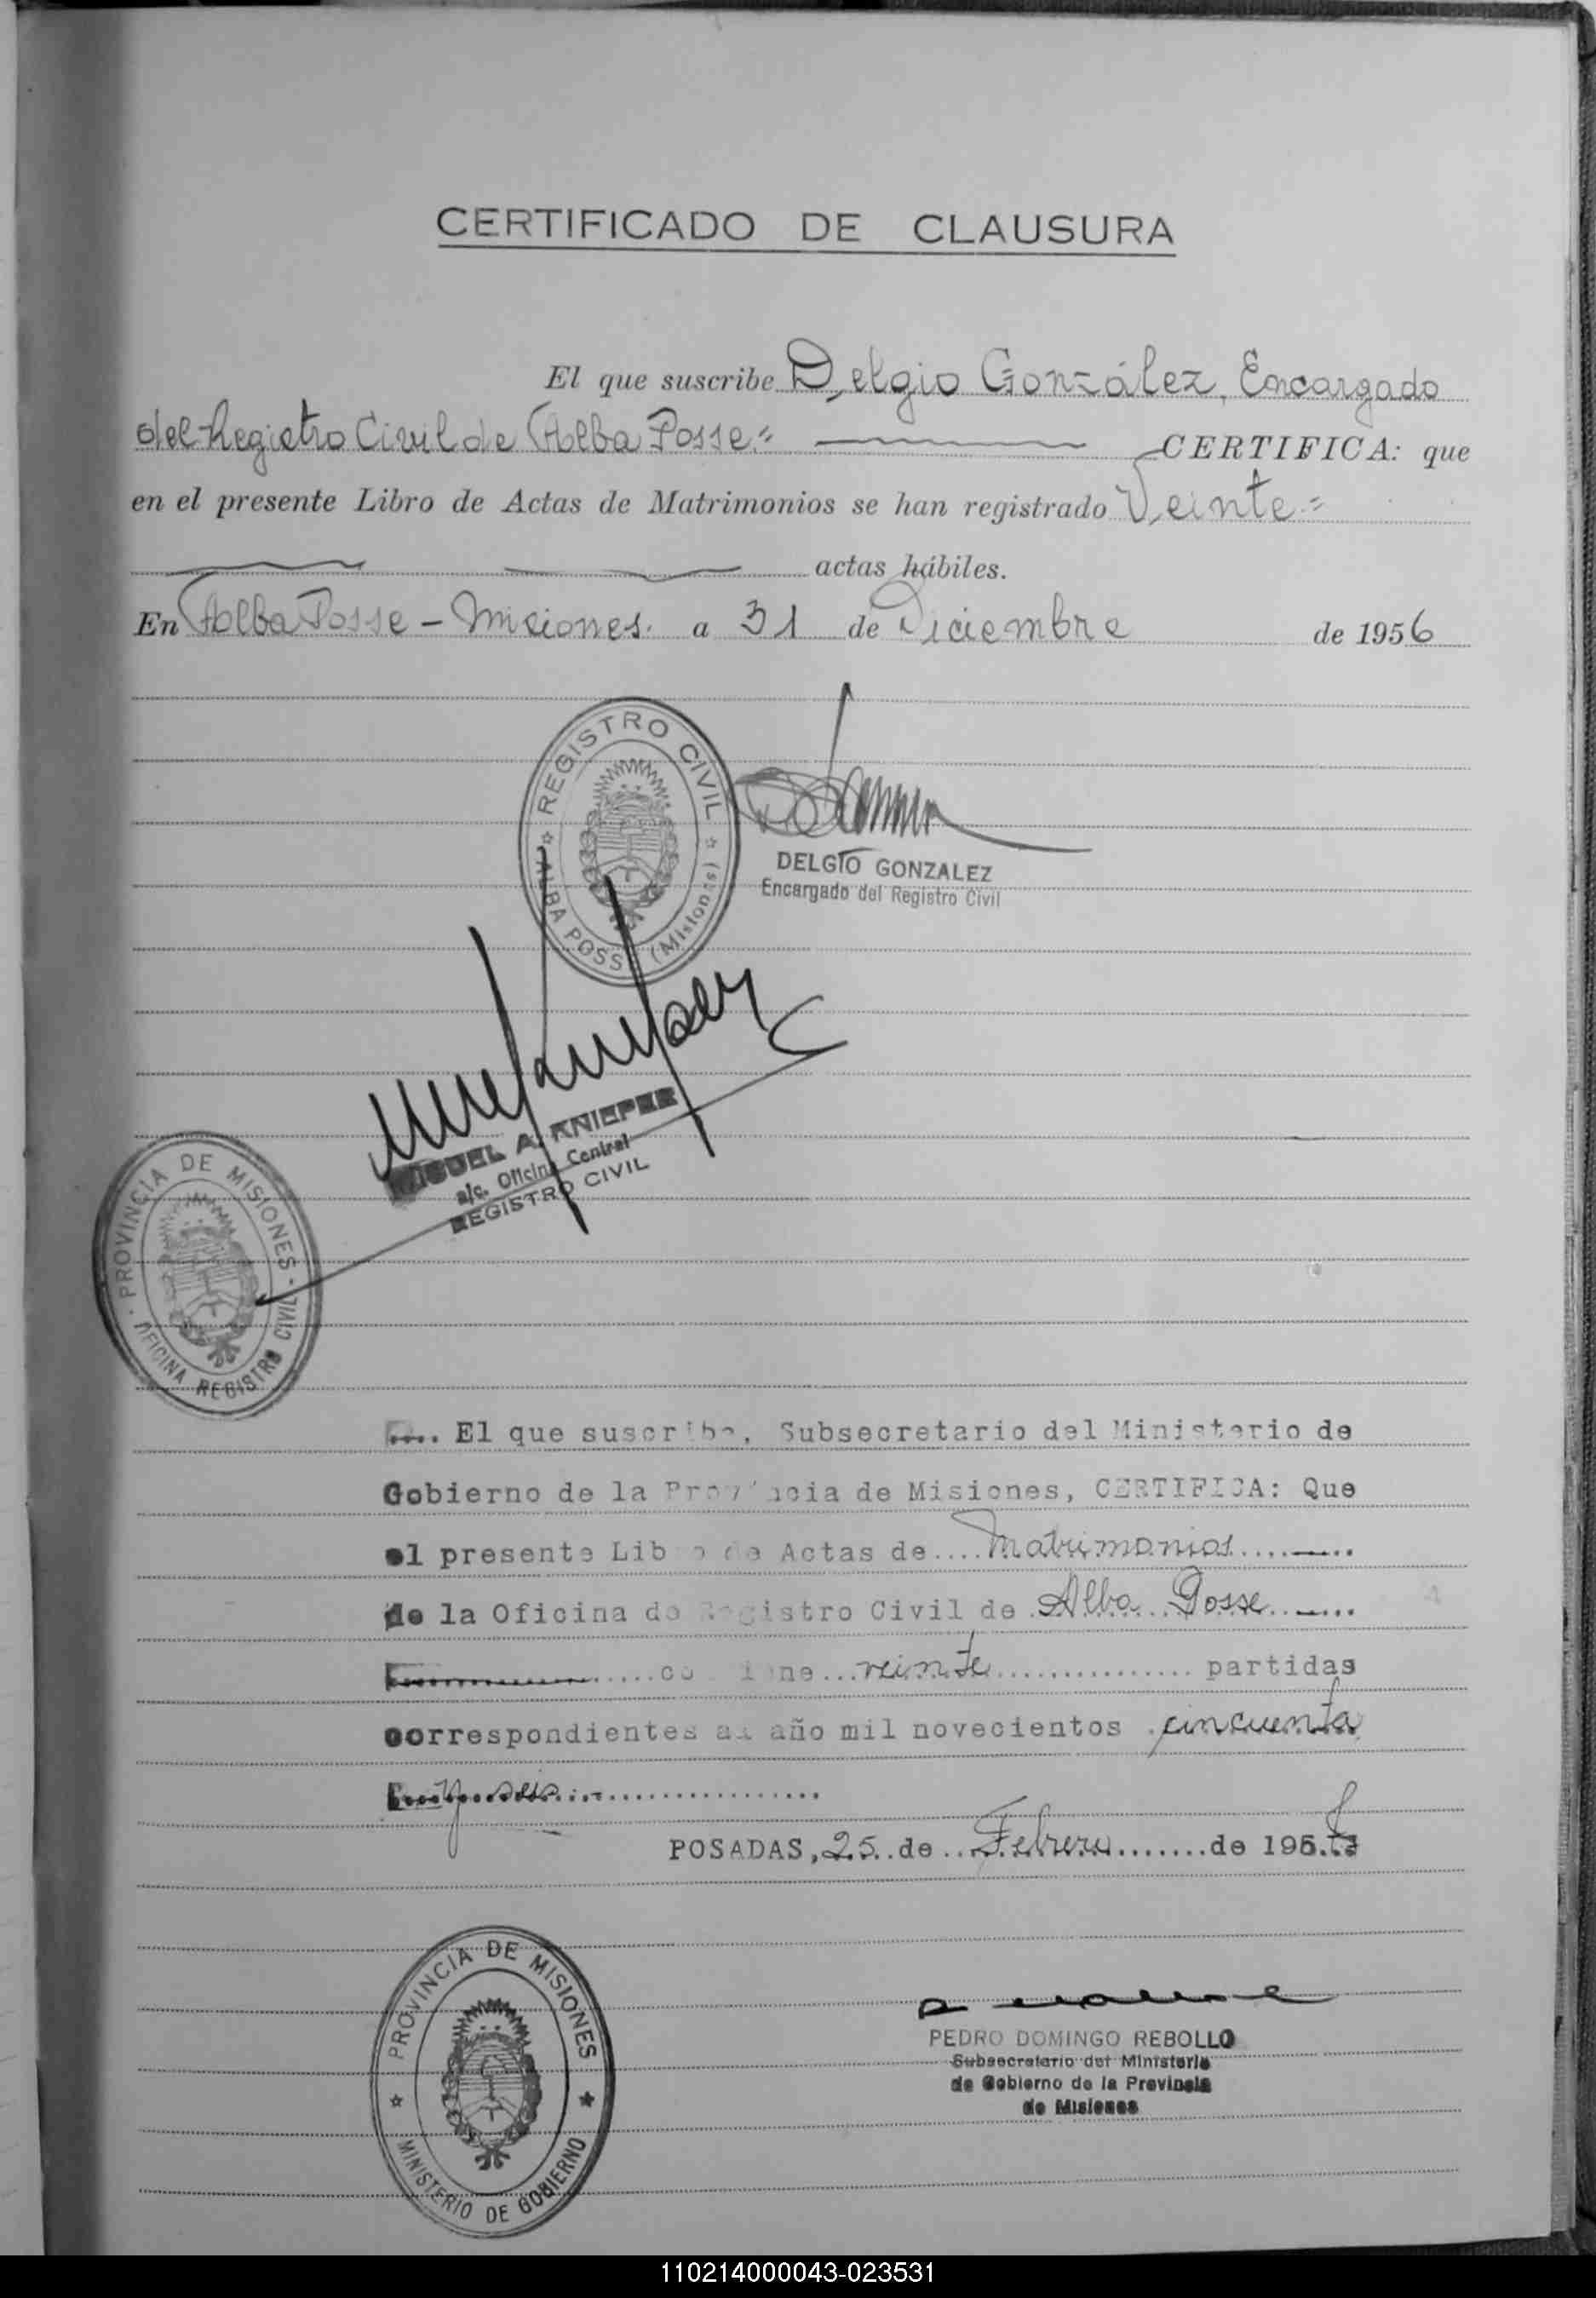 CERTIFICADO DE CLAUSURA
El que suscribe Delgio González, Encargado
del Registro Civil de Alba Posse.=
CERTIFICA: que
en el presente Libro de Actas de Matrimonios se han registrado Veinte.=
actas hábiles.
En Alba Posse - Misiones. a 31 de Diciembre de 1956
REGISTRO CIVIL
ALBA POSSE (Misiones)
DELGIO GONZALEZ
Encargado del Registro Civil
MIGUEL A. KNIEPER
a/c. Oficina Central
REGISTRO CIVIL
PROVINCIA DE MISIONES
OFICINA REGISTRO CIVIL
.... El que suscribe, Subsecretario del Ministerio de
Gobierno de la Provincia de Misiones, CERTIFICA: Que
el presente Libro de Actas de.... Matrimonios
de la Oficina de Registro Civil de Alba Posse
contiene ... veinte ............... partidas
correspondientes al año mil novecientos cincuenta
y seis
POSADAS, 25 de Febrero de 195
PROVINCIA DE MISIONES
MINISTERIO DE GOBIERNO
PEDRO DOMINGO REBOLLO
Subsecretario del Ministerio
de Gobierno de la Provincia
de Misiones
110214000043-023531